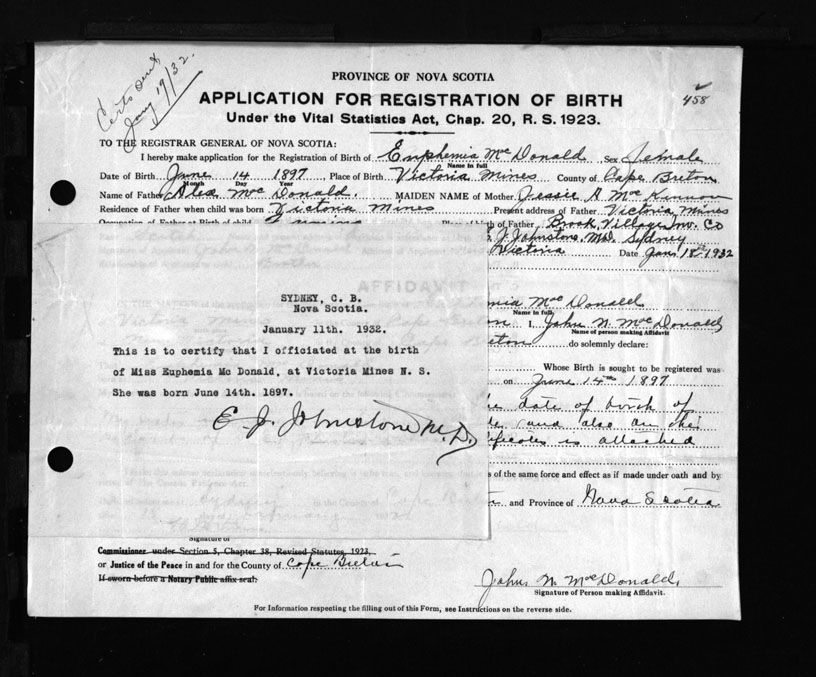 Certs sent
Jany 19/32.
458
PROVINCE OF NOVA SCOTIA
APPLICATION FOR REGISTRATION OF BIRTH
Under the Vital Statistics Act, Chap. 20, R. S. 1923.
TO THE REGISTRAR GENERAL OF NOVA SCOTIA:
I hereby make application for the Registration of Birth of Euphemia Mc Donald Sex Female
Name in full
Date of Birth June 14 1897 Place of Birth Victoria Mines County of Cape Breton
Month Day Year
Name of Father Alex Mac Donald. MAIDEN NAME of Mother Jessie A Mac Kinnon
Residence of Father when child was born Victoria Mines Present address of Father Victoria Mines
Occupation of Father at Birth of child of Father Brook Village Inv. Co
J. Johnstone, M.D. Sydney
Victoria Date Jan. 18th 1932
AFFIDAVIT
SYDNEY, C. B.
Nova Scotia.
January 11th. 1932.
This is to certify that I officiated at the birth
of Miss Euphemia Mc Donald, at Victoria Mines N. S.
She was born June 14th. 1897.
E. J. Johnstone M.D.
mia Mac Donald
Name in full
I, John N. MacDonald
Name of person making Affidavit
do solemnly declare:
Whose Birth is sought to be registered was
on June 14th 1897
date of birth of
and also
is attached
s of the same force and effect as if made under oath and by
and Province of Nova Scotia
Signature of
Commissioner under Section 5, Chapter 38, Revised Statutes, 1923,
or Justice of the Peace in and for the County of Cape Breton
If sworn before a Notary Public affix seal.
John N. MacDonald
Signature of Person making Affidavit.
For Information respecting the filling out of this Form, see Instructions on the reverse side.